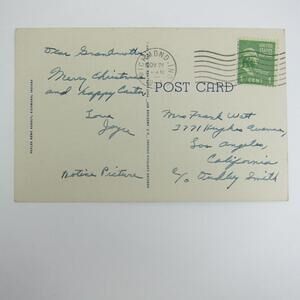 Dear Grandmother
Merry Christmas
and Happy Easter,
Love
Joyce
Notice Picture
RICHMOND, IND.
NOV
POST CARD
Mrs Frank Witt
3771 Hughes Avenue,
Los Angeles,
California
c/o Dudley Smith